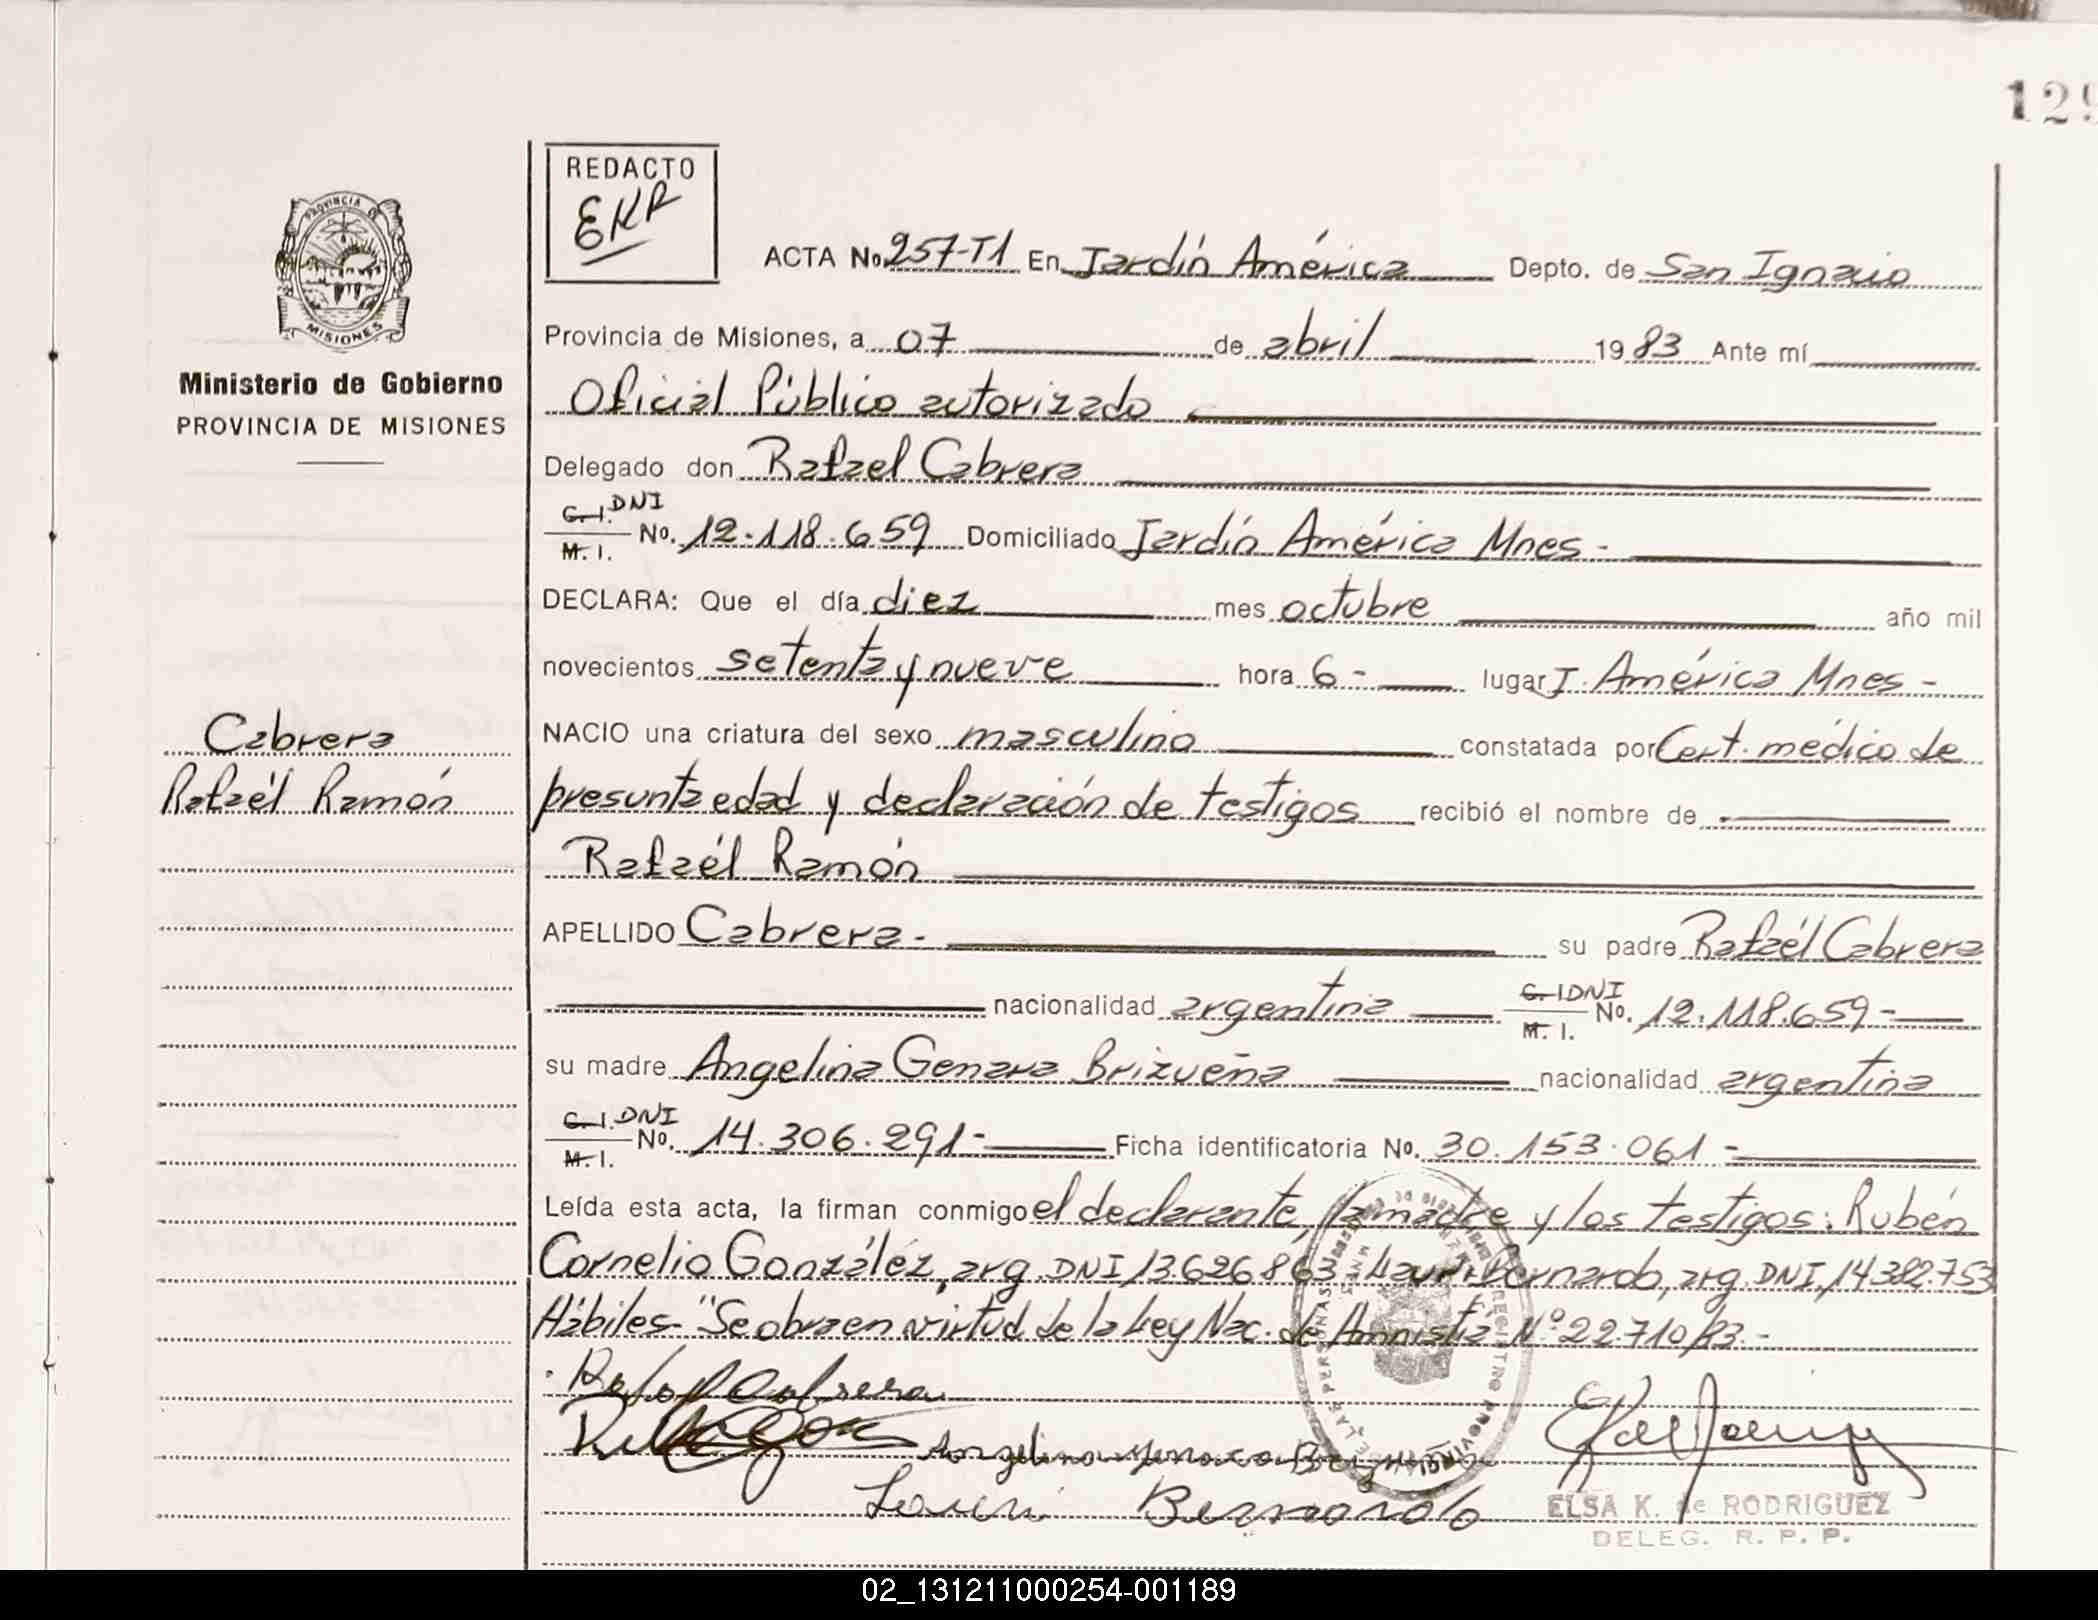 129
REDACTO
EKR
ACTA No. 257-T1 En Jardín América Depto. de San Ignacio
PROVINCIA DE
MISIONES
Provincia de Misiones, a 07 de abril 1983 Ante mí
Ministerio de Gobierno
Oficial Público autorizado
PROVINCIA DE MISIONES
Delegado don Rafael Cabrera
C. I. DNI
M. I. No. 12.118.659 Domiciliado Jardín América Mnes-
DECLARA: Que el día diez mes octubre año mil
novecientos setenta y nueve hora 6- lugar J. América Mnes-
Cabrera
NACIO una criatura del sexo masculino constatada por Cert. médico de
Rafaél Ramón
presunta edad y declaración de testigos recibió el nombre de
Rafaél Ramón
APELLIDO Cabrera- su padre Rafaél Cabrera
nacionalidad argentina C. I. DNI M. I. No. 12.118.659-
su madre Angelina Genara Brizueña nacionalidad argentina
C. I. DNI
M. I. No. 14.306.291- Ficha identificatoria No. 30.153.061-
Leída esta acta, la firman conmigo el declarante, la madre y los testigos: Rubén
Cornelio González, arg. DNI, 13.626.863 Bernardo, arg. DNI, 14.382.753
Hábiles- "Se obra en virtud de la Ley Nac. de Amnistía Nº 22.710/83.-
Rafael Cabrera
Angelina Genara
Bernardo
ELSA K. de RODRIGUEZ
DELEG. R. P. P.
02_131211000254-001189